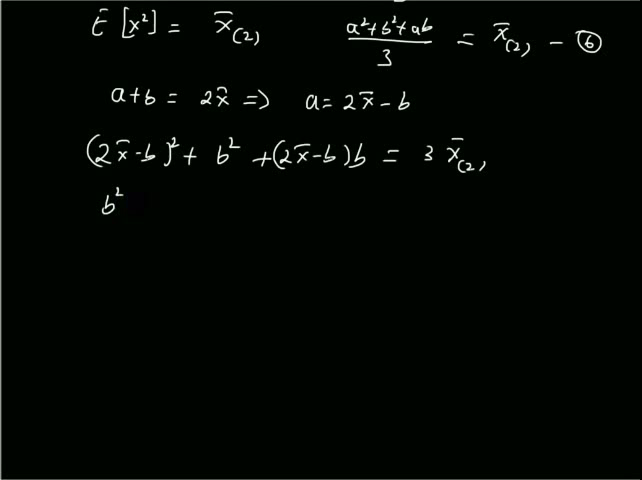 E [x²] = x̄₍₂₎   (a²+b²+ab)/3 = x̄₍₂₎ - ⑥
a+b = 2x̄ => a = 2x̄ - b
(2x̄-b)² + b² + (2x̄-b)b = 3 x̄₍₂₎
b²